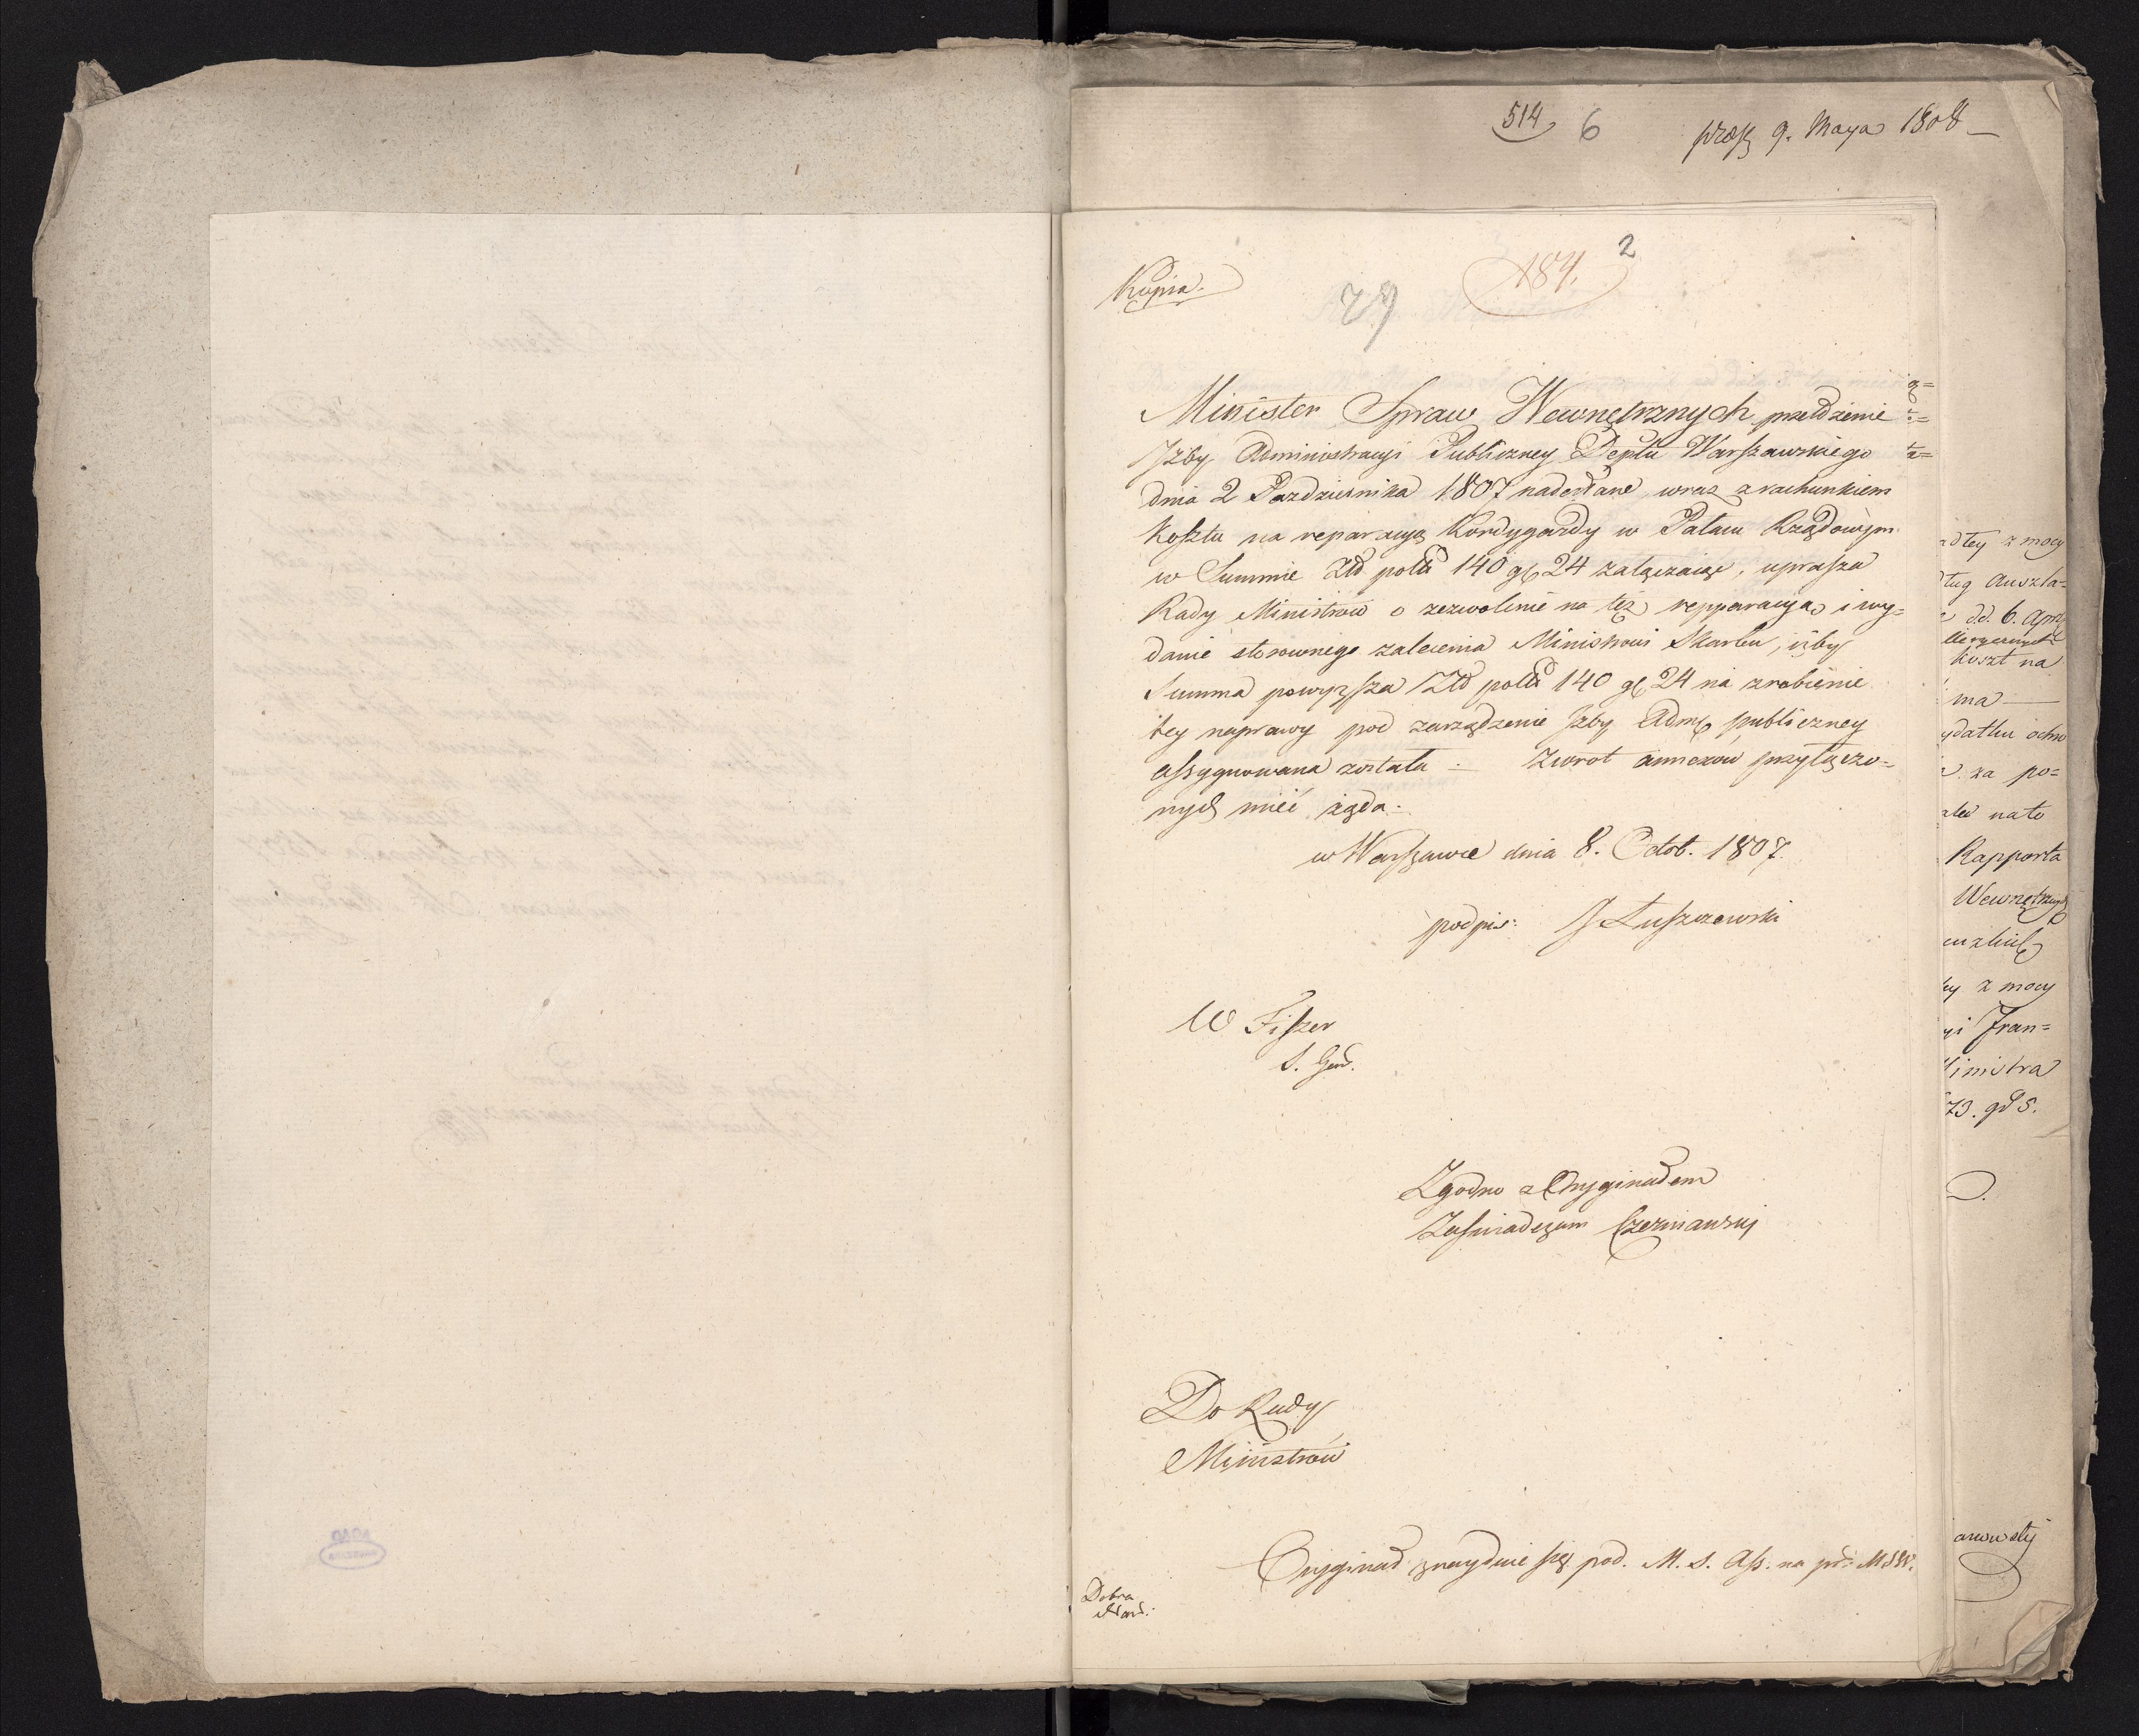 514 6 praes. 9. Maya 1808
2
Kopia. 184.
79
Minister Spraw Wewnętrznych przełożenie
Izby Administracyi Publiczney Deptu Warszawskiego
dnia 2 Pazdziernika 1807 nadesłane, wraz z rachunkiem
Kosztu na reparacyą Kordygardy w Pałacu Rządowym
w Summie Złł polll 140 gr 24 załączaiąc, uprasza
Rady Ministrow o zezwolenie na tęż repparacyą i wy=
danie stosownego zalecenia Ministrowi Skarbu, iżby
Summa powyższa Złł polll 140 gr 24 na zrobienie
tey naprawy pod zarządzenie Izby Adm publiczney
assygnowana została. Zwrot annexów przyłączo=
nych mieć żąda.
w Warszawie dnia 8. Octob. 1807.
podpis: J Łuszczewski
W Fiszer
S. Gen.
Zgodno z Oryginałem
Zaswiadczam Czerniawski
Do Rady
Ministrów
Oryginał znayduie się pod. M. S. Ass. na MSW.
Dobra
Nar.
z mocy
dd. 6. Apr
koszt na
ma
za po=
nato
Rapporta
Wewnętrznych
z mocy
Fran=
73. gr 5.